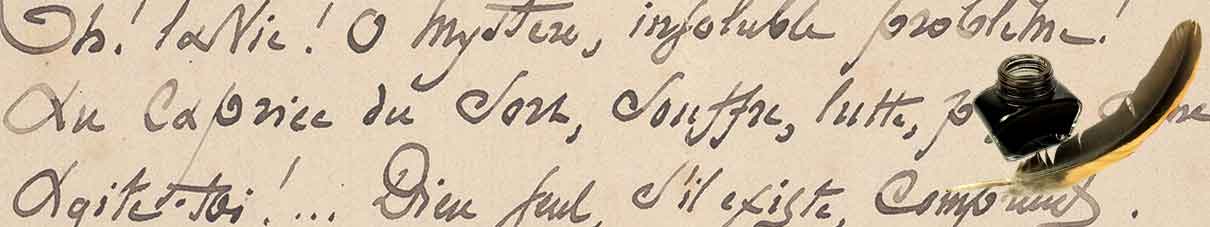 Oh! la Vie! O Mystère, insoluble problème!
Au Caprice du Sort, Souffre, lutte,
Agite-toi!... Dieu seul, s'il existe, Comprend.